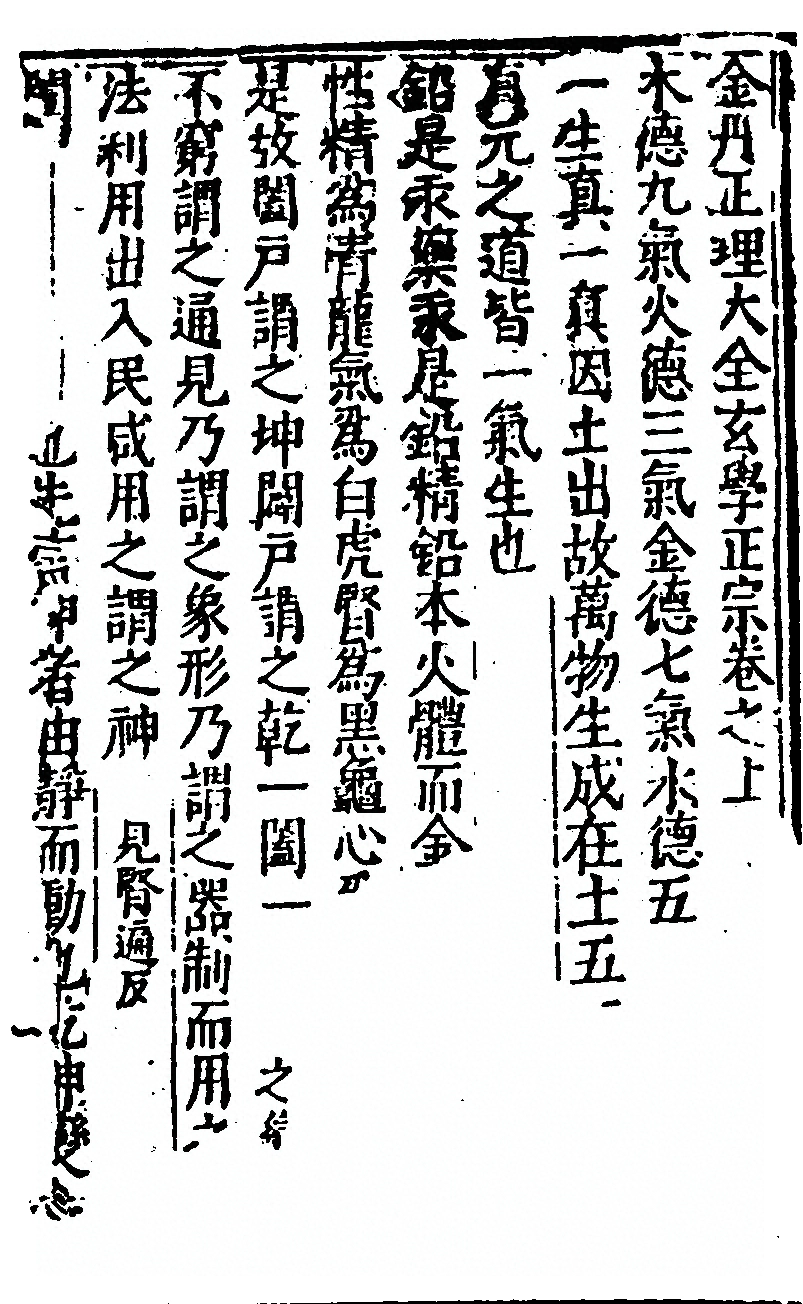 金丹正理大全玄學正宗卷之上
木德九氣火德三氣金德七氣水德五
一生真一真因土出故萬物生成在土五
真元之道皆一氣生也
鉛是汞藥汞是鉛精鉛本火體而金
性精為青龍氣為白虎腎為黑龜心
是故闔戶謂之坤闢戶謂之乾一闔一
不窮謂之通見乃謂之象形乃謂之器制而用之
法利用出入民咸用之謂之神 見賢遍反
闔 先 者由靜而動也乾坤變